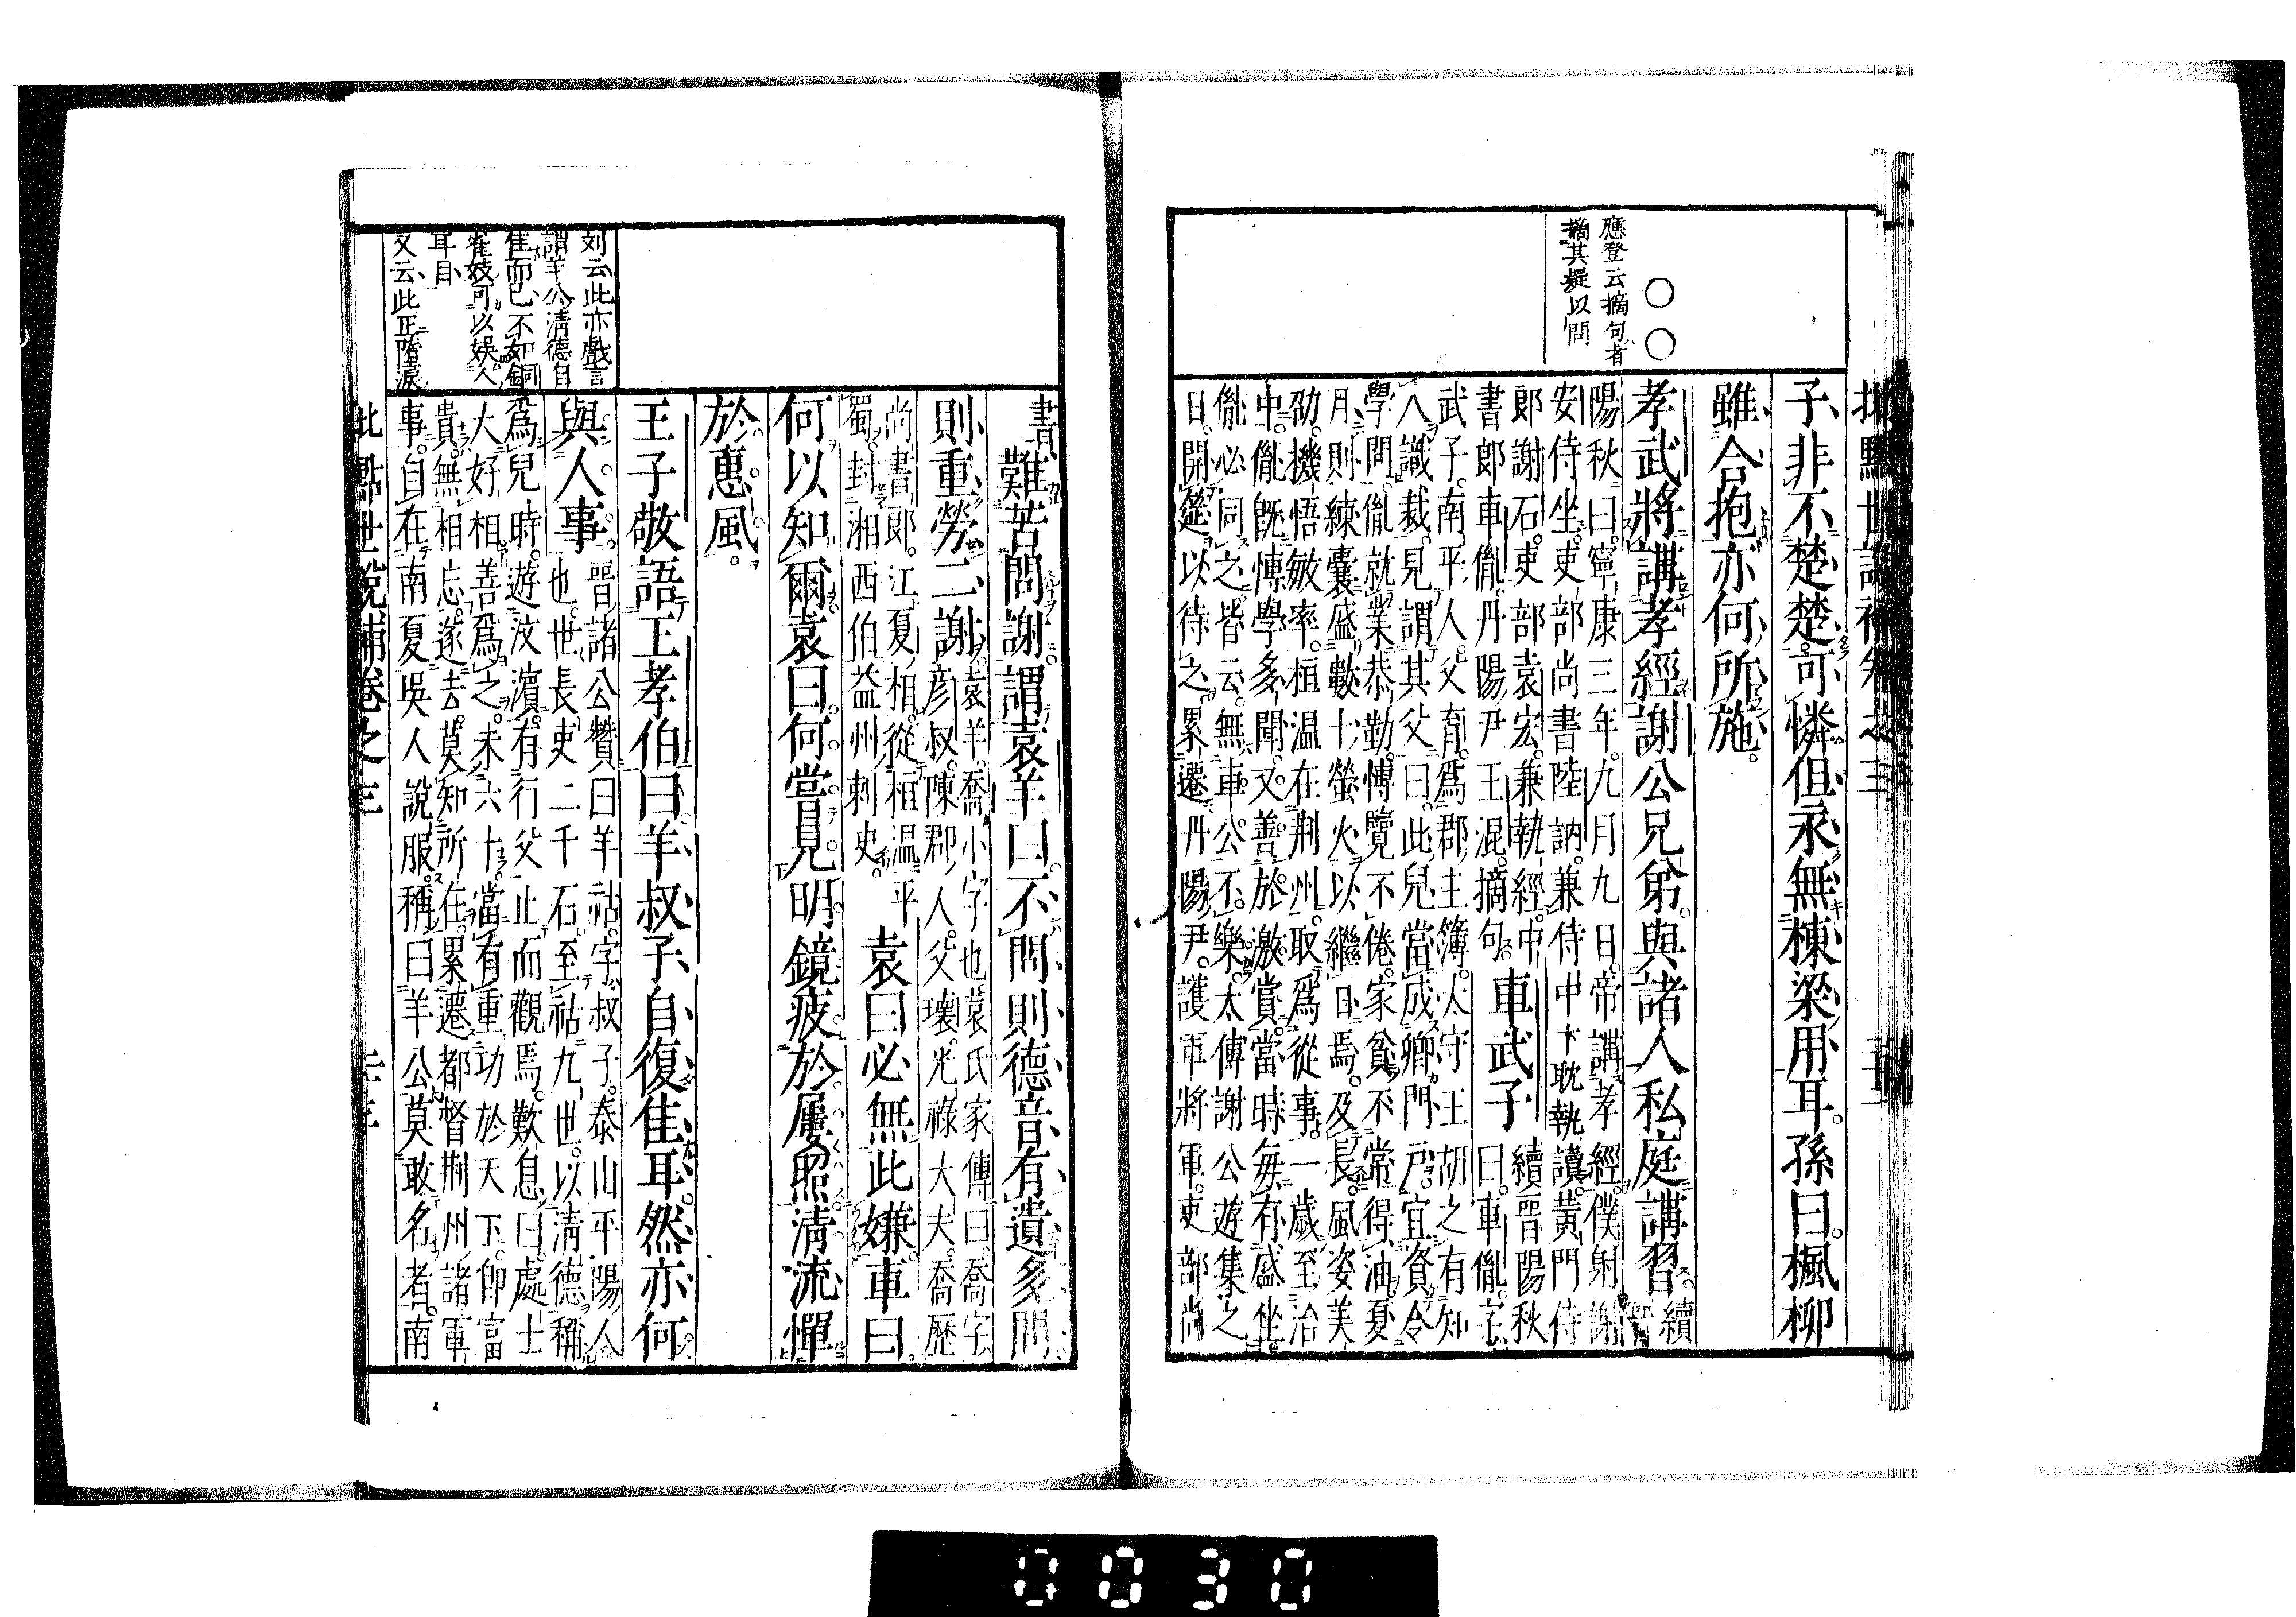 應登云摘句者
摘其疑以問
子非不楚楚可憐但永無棟梁用耳孫曰楓柳
雖合抱亦何所施
孝武將講孝經謝公兄弟與諸人私庭講習續
陽秋曰寧康三年九月九日帝講孝經僕射謝
安侍坐吏部尚書陸訥兼侍中卞耽執讀黃門侍
郎謝石吏部袁宏兼執經中
書郎車胤丹陽尹王混摘句
車武子
續晉陽秋
曰車胤字
武子南平人父育爲郡主簿太守王胡之有知
人識裁見謂其父曰此兒當成卿門戶宜資令
學問胤就業恭勤博覽不倦家貧不常得油夏
月則練囊盛數十螢火以繼日焉及長風姿美
劭機悟敏率桓温在荆州取爲從事一歲至治
中胤既博學多聞又善於激賞當時每有盛坐
胤必同之皆云無車公不樂太傅謝公遊集之
日開筵以待之累遷丹陽尹護軍將軍吏部尚
書
難苦問謝謂袁羊曰不問則德音有遺多問
則重勞二謝
袁羊喬小字也袁氏家傳曰喬字
彦叔陳郡人父瓌光祿大夫喬歷
尚書郎江夏相從桓温平
蜀封湘西伯益州刺史
袁曰必無此嫌車曰
何以知爾袁曰何嘗見明鏡疲於屢照清流憚
於惠風
王子敬語王孝伯曰羊叔子自復佳耳然亦何
與人事
晉諸公贊曰羊祜字叔子泰山平陽人
也世長吏二千石至祜九世以清德稱
爲兒時遊汶濱有行父止而觀焉歎息曰處士
大好相善爲之未六十當有重功於天下卽富
貴無相忘遂去莫知所在累遷都督荆州諸軍
事自在南夏吳人說服稱曰羊公莫敢名者南
刘云此亦戲言
謂羊公清德自
佳而已不如銅
雀妓可以娛人
耳目
又云此正墮淚
批點世說補卷之三